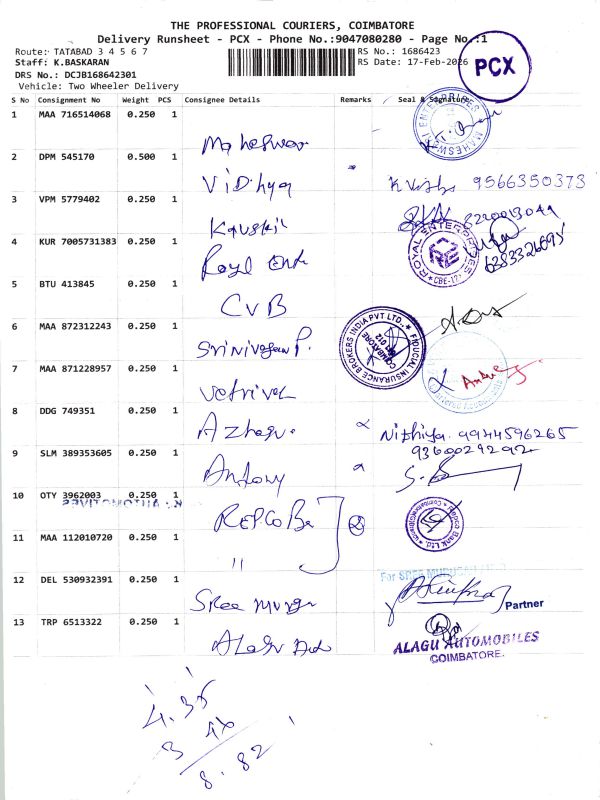 THE PROFESSIONAL COURIERS, COIMBATORE
Delivery Runsheet - PCX - Phone No.:9047080280 - Page No.:1
Route: TATABAD 3 4 5 6 7
RS No.: 1686423
Staff: K.BASKARAN
RS Date: 17-Feb-2026
DRS No.: DCJB168642301
Vehicle: Two Wheeler Delivery
PCX
S No Consignment No Weight PCS Consignee Details Remarks Seal & Signature
1 MAA 716514068 0.250 1
Maheswar
MAHESWARI ENTERPRISES
2 DPM 545170 0.500 1
Vidhya
9566350373
3 VPM 5779402 0.250 1
Kaushik
4 KUR 7005731383 0.250 1
Royal
ROYAL ENTERPRISES
CBE-12
6383326695
5 BTU 413845 0.250 1
CVB
6 MAA 872312243 0.250 1
Srinivasan P.
FIDUCIAL INSURANCE BROKERS INDIA PVT LTD.,
COIMBATORE
641 012
7 MAA 871228957 0.250 1
Vetrivel
8 DDG 749351 0.250 1
Azhagu
Nithiya. 9944596265
9360029292
9 SLM 389353605 0.250 1
Antony
10 OTY 3962003 0.250 1
REPCO Ba
Repco Bank Ltd.
11 MAA 112010720 0.250 1
"
12 DEL 530932391 0.250 1
Sree Muruga
For SREE MURUGAN
Partner
13 TRP 6513322 0.250 1
Alagu Aut
ALAGU AUTOMOBILES
COIMBATORE.
4.35
8.82